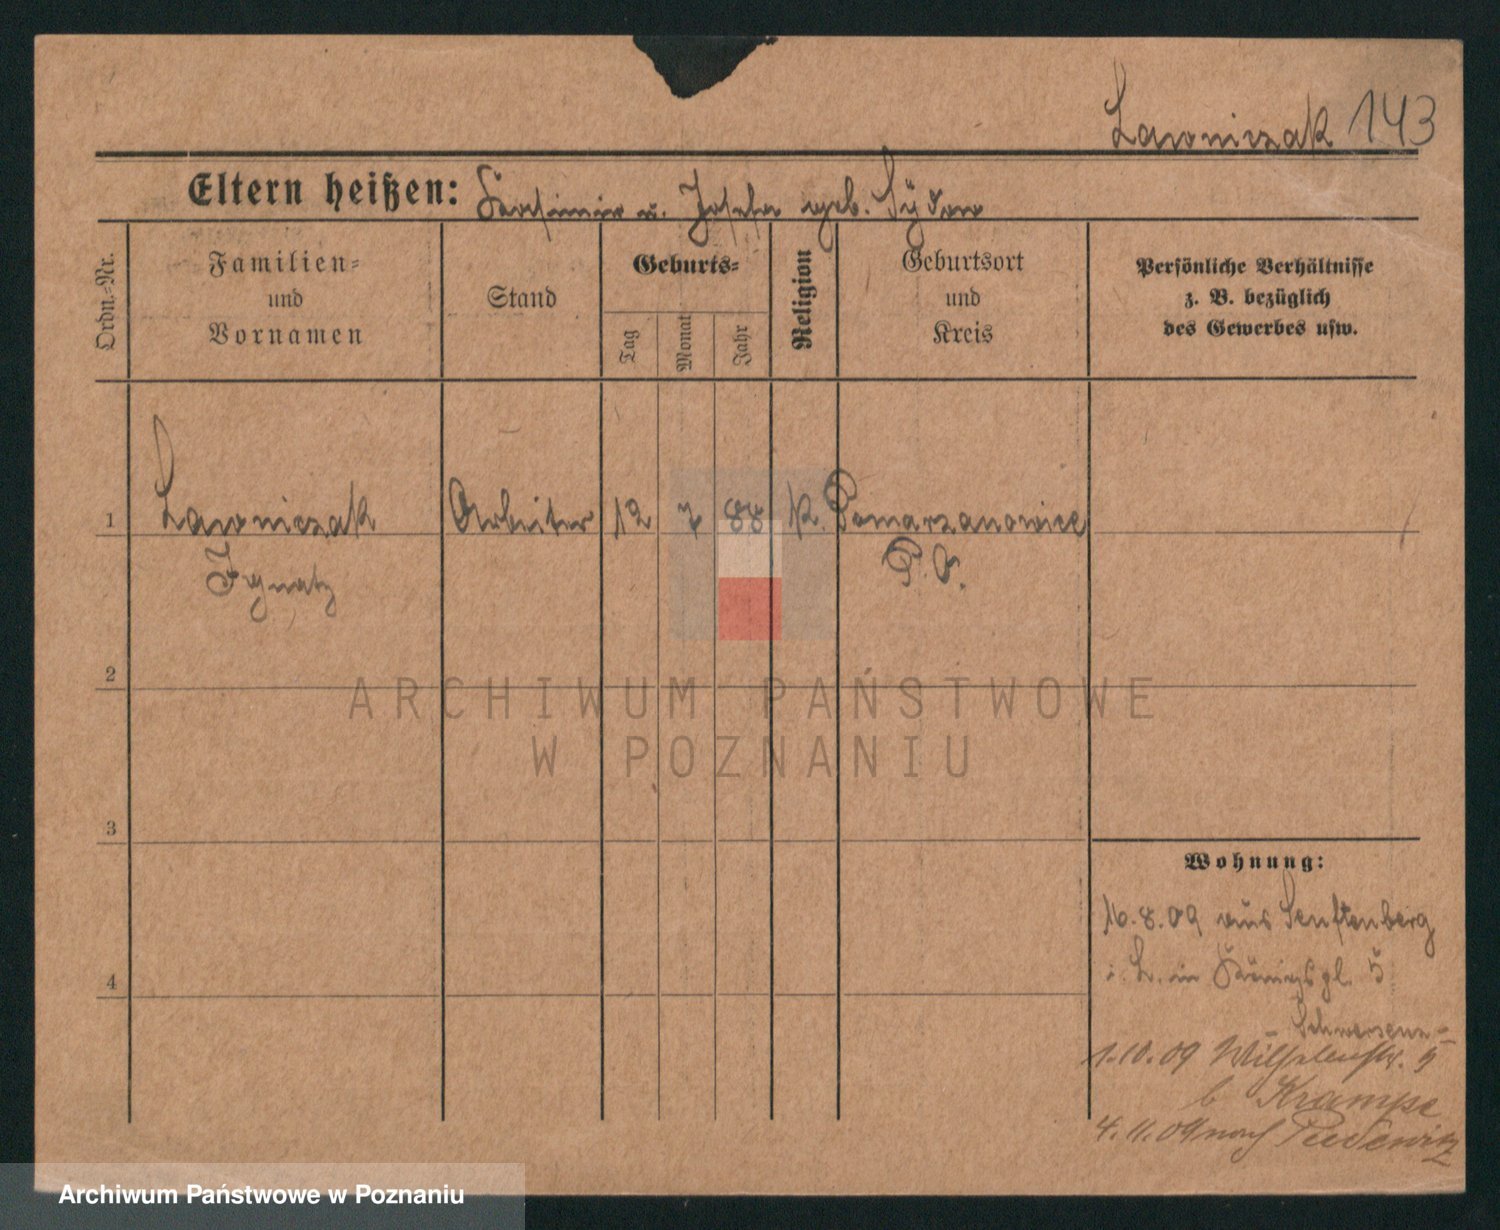 Lawniczak 143
Eltern heißen: Kasimir u. Josefa geb. Sydow
Ordn.-Nr.
Familien-
und
Vornamen
Stand
Geburts-
Tag
Monat
Jahr
Religion
Geburtsort
und
Kreis
Persönliche Verhältnisse
z. B. bezüglich
des Gewerbes usw.
1 Lawniczak Arbeiter 12 7 88 K. Pomarzanowice
Ignatz P. O.
2
ARCHIWUM PAŃSTWOWE
W POZNANIU
3
Wohnung:
16.8.09 aus Senftenberg
4
i. L. in Königspl. 5
Schwersenz-
1.10.09 Wilhelmstr. 5
b Krampe
4.11.09 nach Pudewitz
Archiwum Państwowe w Poznaniu